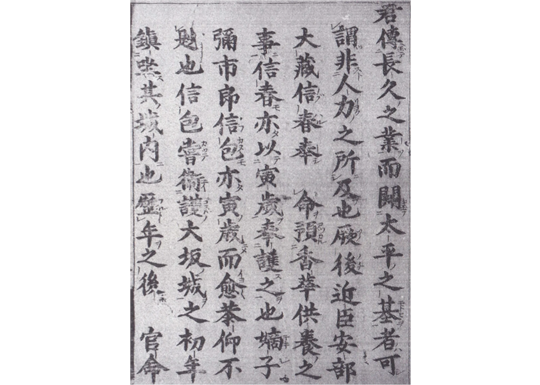 君傳長久之業而闢太平之基者可
謂非人力之所及也厥後近臣安部
大藏信春奉 命預香華供養之
事信春亦以寅歲奉護之也嫡子
彌市郎信包亦寅歲而愈恭仰不
尠也信包嘗衞護大坂城之初年
鎮坐其城内也歷年之後 官命